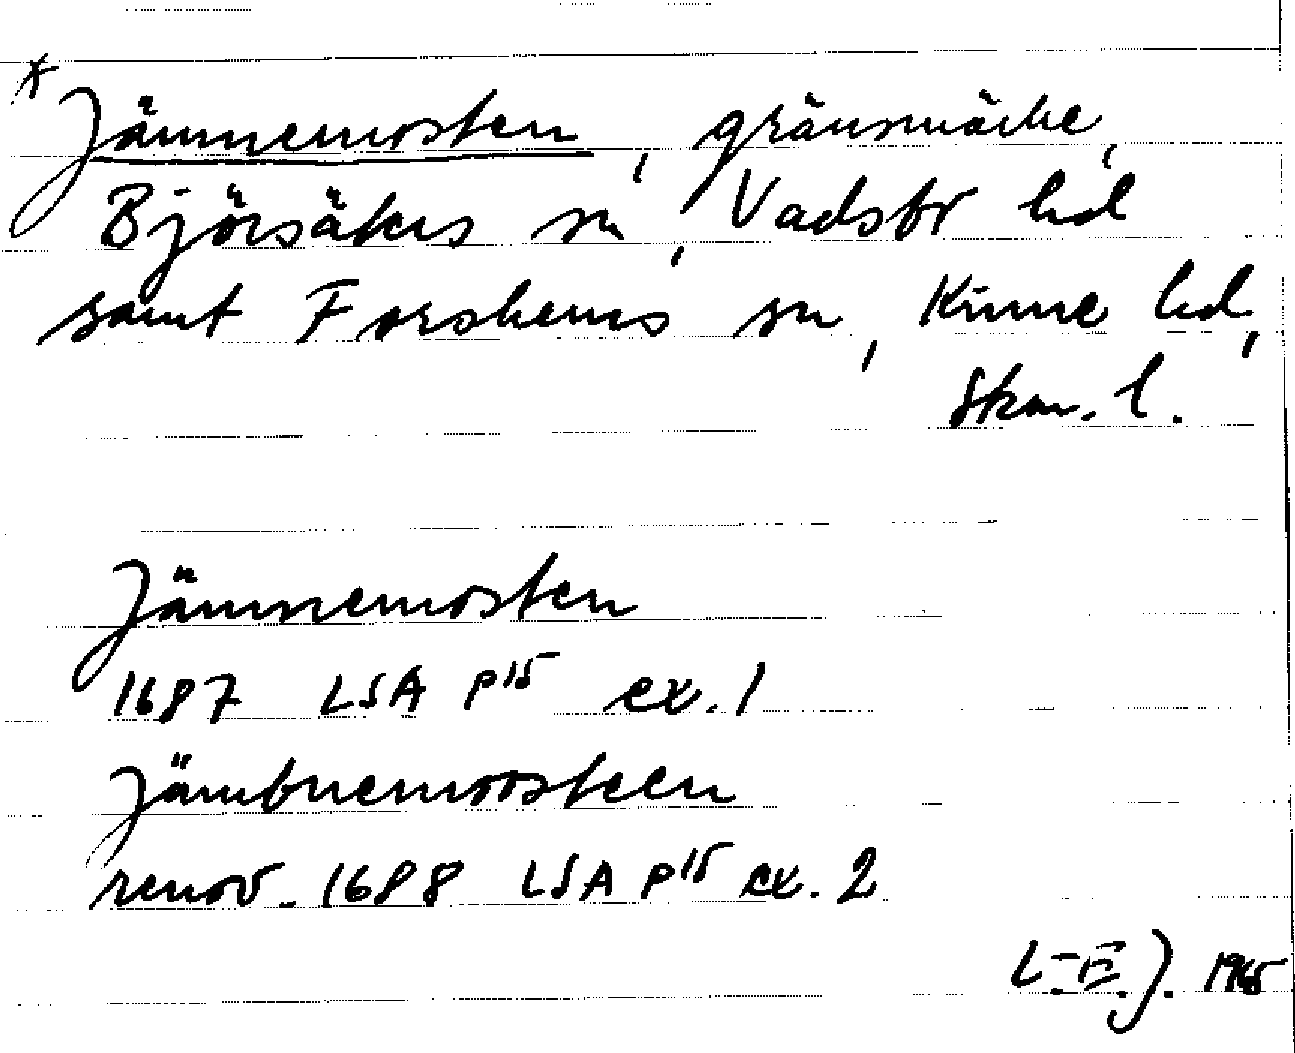 * Jämnemosten, gränsmärke,
Björsäters sn, Vadsbo hd
samt Forshems sn, Kinne hd,
Skar. l.
Jämnemosten
1687 LSA P15 ex. 1
Jämbnemoosteen
renov. 1688 LSA P15 ex. 2
L-E. J. 1965